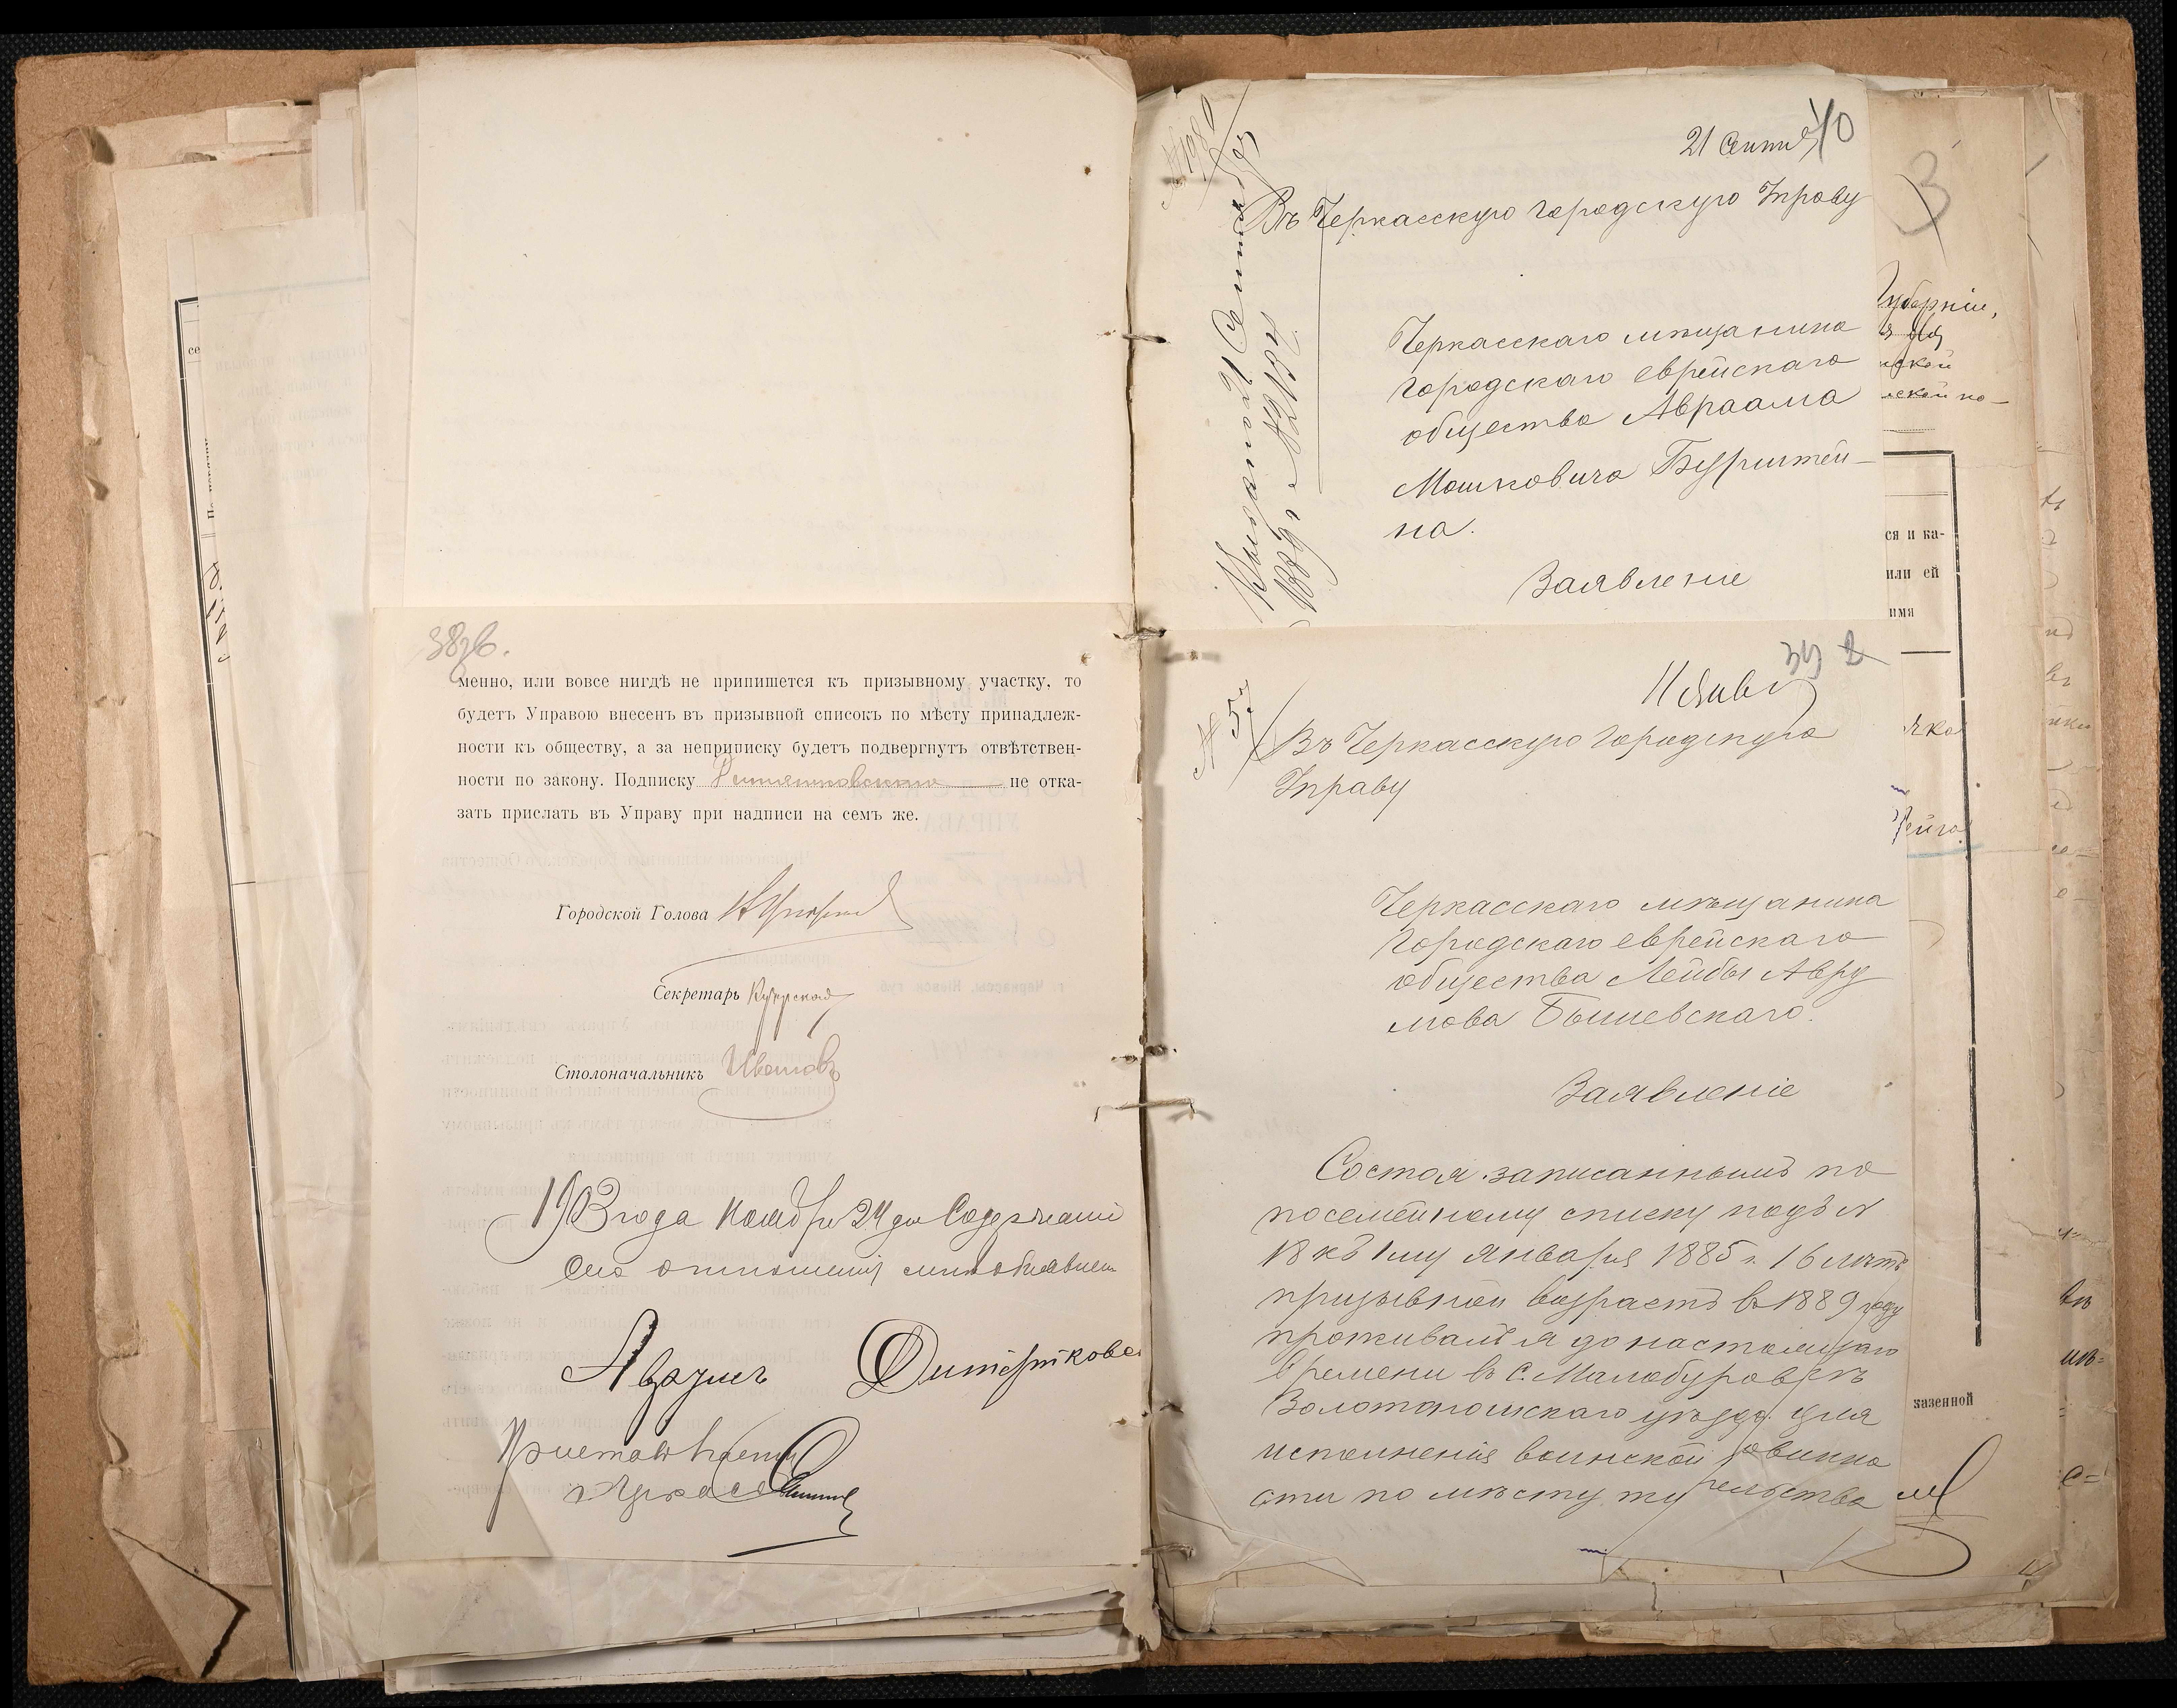 38об.
менно, или вовсе нигдѣ не припишется къ призывному участку, то
будетъ Управою внесенъ въ призывной списокъ по мѣсту принадлеж-
ности къ обществу, а за неприписку будетъ подвергнутъ отвѣтствен-
ности по закону. Подписку не отка-
зать прислать въ Управу при надписи на семъ же.
Городской Голова
Секретарь
Столоначальникъ Ивановъ
1903 года Ноября 24 дня Содержание
сего отношения мнѣ объявлено
Аврумъ
21 Сентяб 40
Въ Черкасскую городскую Управу
Черкасскаго мѣщанина
городскаго еврейскаго
общества Авраама
Мошковича Бурштей-
на.
Заявление
21 Сентября
1889 г. №
39 2
11 Янв
№ 57
Въ Черкасскую Городскую
Управу
Черкасскаго мѣщанина
Городскаго еврейскаго
общества Лейбы Авру
мова Бышевскаго.
Заявленіе
Состоя записаннымъ по
посемейному списку подъ №
18 къ 1му января 1885 г. 16 лѣтъ
призывной возрастъ въ 1889 году
проживалъ я до настоящаго
времени въ с. Малобуровкѣ
Золотоношскаго уѣзда. Для
исполненія воинской повинно
сти по мѣсту жительства
3
Губерніи,
ской
ской по-
ся и ка-
или ей
имя
казенной